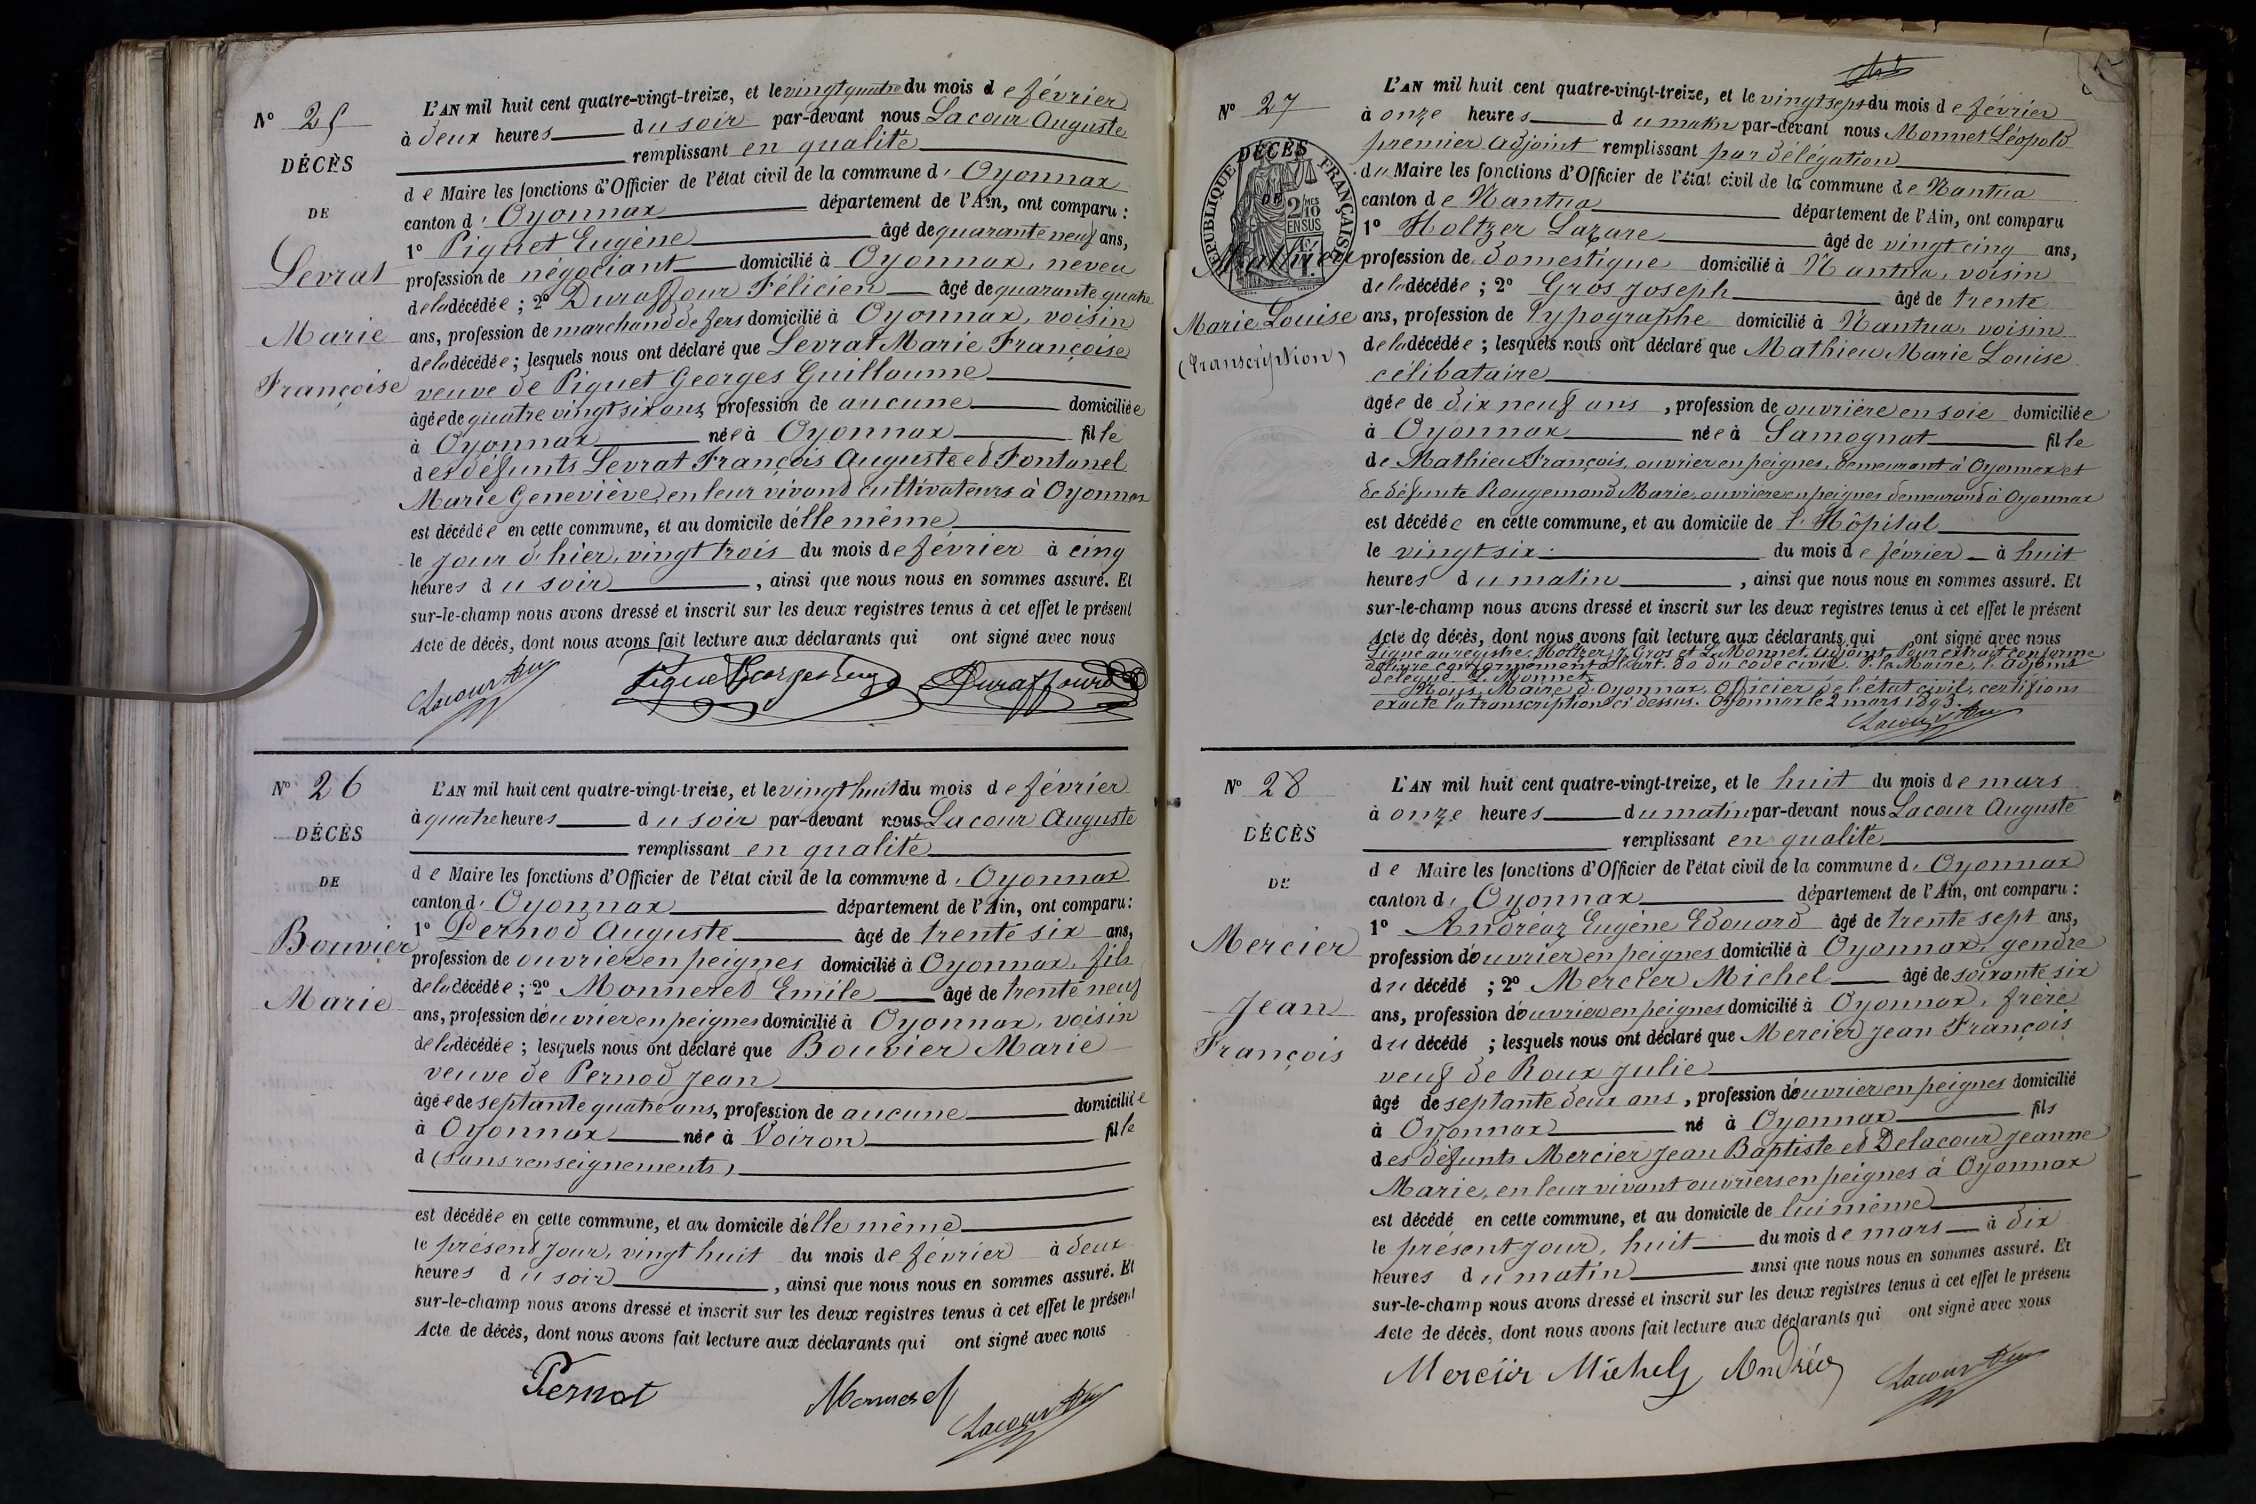 N° 25
DÉCÈS
DE
Levrat
Marie
Françoise
L'AN mil huit cent quatre-vingt-treize, et le vingt quatre du mois de février
à deux heures du soir par-devant nous Lacour Auguste
remplissant en qualité
de Maire les fonctions d'Officier de l'état civil de la commune d'Oyonnax
canton d'Oyonnax département de l'Ain, ont comparu :
1° Piquet Eugène âgé de quarante neuf ans,
profession de négociant domicilié à Oyonnax, neveu
de la décédée ; 2° Duraffour Félicien âgé de quarante quatre
ans, profession de marchand de fers domicilié à Oyonnax, voisin
de la décédée ; lesquels nous ont déclaré que Levrat Marie Françoise
veuve de Piquet Georges Guillaume
âgée de quatre vingt six ans, profession de aucune domiciliée
à Oyonnax née à Oyonnax fille
des défunts Levrat François Auguste et Fontanel
Marie Geneviève, en leur vivant cultivateurs à Oyonnax
est décédée en cette commune, et au domicile d'elle même
le jour d'hier, vingt trois du mois de février à cinq
heures du soir, ainsi que nous nous en sommes assuré. Et
sur-le-champ nous avons dressé et inscrit sur les deux registres tenus à cet effet le présent
Acte de décès, dont nous avons fait lecture aux déclarants qui ont signé avec nous
Lacour Piquet Georges Eug Duraffourd
N° 26
DÉCÈS
DE
Bouvier
Marie
L'AN mil huit cent quatre-vingt-treize, et le vingt huit du mois de février
à quatre heures du soir par-devant nous Lacour Auguste
remplissant en qualité
de Maire les fonctions d'Officier de l'état civil de la commune d'Oyonnax
canton d'Oyonnax département de l'Ain, ont comparu :
1° Pernod Auguste âgé de trente six ans,
profession de ouvrier en peignes domicilié à Oyonnax, fils
de la décédée ; 2° Monneret Emile âgé de trente neuf
ans, profession d'ouvrier en peignes domicilié à Oyonnax, voisin
de la décédée ; lesquels nous ont déclaré que Bouvier Marie
veuve de Pernod Jean
âgée de septante quatre ans, profession de aucune domiciliée
à Oyonnax née à Voiron fille
d (sans renseignements)
est décédée en cette commune, et au domicile d'elle même
le présent jour, vingt huit du mois de février à deux
heures du soir, ainsi que nous nous en sommes assuré. Et
sur-le-champ nous avons dressé et inscrit sur les deux registres tenus à cet effet le présent
Acte de décès, dont nous avons fait lecture aux déclarants qui ont signé avec nous
Pernot Monneret Lacour
N° 27
DÉCÈS
DE
RÉPUBLIQUE FRANÇAISE
2/10 EN SUS
Mathieu
Marie Louise
(Transcription)
L'AN mil huit cent quatre-vingt-treize, et le vingt sept du mois de février
à onze heures du matin par-devant nous Monnet Léopold
premier adjoint remplissant par délégation
du Maire les fonctions d'Officier de l'état civil de la commune de Nantua
canton de Nantua département de l'Ain, ont comparu
1° Holtzer Lazare âgé de vingt cinq ans,
profession de domestique domicilié à Nantua, voisin
de la décédée ; 2° Gros Joseph âgé de trente
ans, profession de Typographe domicilié à Nantua, voisin
de la décédée ; lesquels nous ont déclaré que Mathieu Marie Louise
célibataire
âgée de dix neuf ans, profession de ouvrière en soie domiciliée
à Oyonnax née à Samognat fille
de Mathieu François, ouvrier en peignes, demeurant à Oyonnax et
de défunte Rougemond Marie, ouvrière en peignes demeurant à Oyonnax
est décédée en cette commune, et au domicile de l'Hôpital
le vingt six du mois de février à huit
heures du matin, ainsi que nous nous en sommes assuré. Et
sur-le-champ nous avons dressé et inscrit sur les deux registres tenus à cet effet le présent
Acte de décès, dont nous avons fait lecture aux déclarants qui ont signé avec nous
Signé au registre, Holtzer, J. Gros et L. Monnet, adjoint. Pour extrait conforme
délivré conformément à l'art. 80 du code civil. P. le Maire, l'adjoint
délégué L. Monnet.
Nous, Maire d'Oyonnax, Officier de l'état civil, certifions
exacte la transcription ci dessus. Oyonnax le 2 mars 1893.
Lacour
N° 28
DÉCÈS
DE
Mercier
Jean
François
L'AN mil huit cent quatre-vingt-treize, et le huit du mois de mars
à onze heures du matin par-devant nous Lacour Auguste
remplissant en qualité
de Maire les fonctions d'Officier de l'état civil de la commune d'Oyonnax
canton d'Oyonnax département de l'Ain, ont comparu :
1° Andréaz Eugène Edouard âgé de trente sept ans,
profession d'ouvrier en peignes domicilié à Oyonnax, gendre
du décédé ; 2° Mercier Michel âgé de soixante six
ans, profession d'ouvrier en peignes domicilié à Oyonnax, frère
du décédé ; lesquels nous ont déclaré que Mercier Jean François
veuf de Roux Julie
âgé de septante deux ans, profession d'ouvrier en peignes domicilié
à Oyonnax né à Oyonnax fils
des défunts Mercier Jean Baptiste et Delacour Jeanne
Marie, en leur vivant ouvriers en peignes à Oyonnax
est décédé en cette commune, et au domicile de lui même
le présent jour, huit du mois de mars à dix
heures du matin ainsi que nous nous en sommes assuré. Et
sur-le-champ nous avons dressé et inscrit sur les deux registres tenus à cet effet le présent
Acte de décès, dont nous avons fait lecture aux déclarants qui ont signé avec nous
Mercier Michel Andréa Lacour